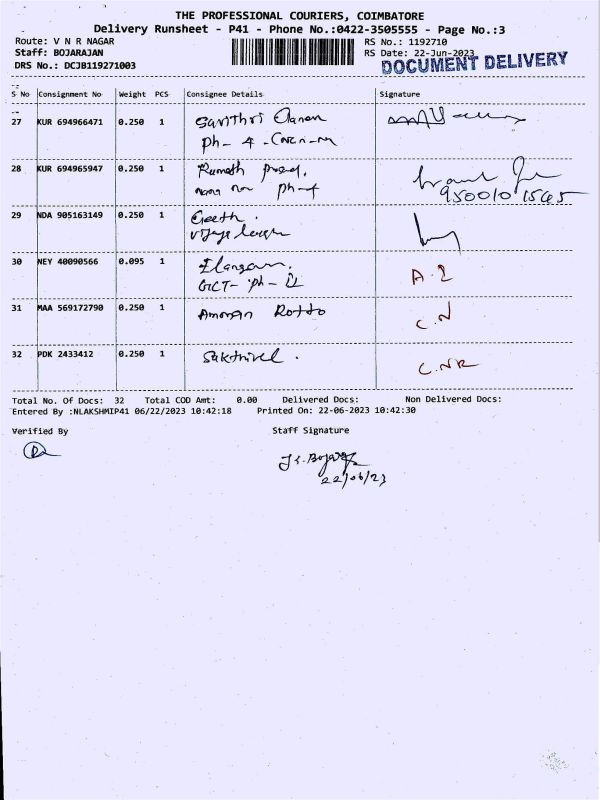 THE PROFESSIONAL COURIERS, COIMBATORE
Delivery Runsheet - P41 - Phone No.:0422-3505555 - Page No.:3
Route: V N R NAGAR RS No.: 1192710
Staff: BOJARAJAN RS Date: 22-Jun-2023
DRS No.: DCJB119271003 DOCUMENT DELIVERY
S No Consignment No Weight PCS Consignee Details Signature
27 KUR 694966471 0.250 1
Ph- 4
28 KUR 694965947 0.250 1
ph-4 9500101565
29 NDA 905163149 0.250 1 Geeth.
30 NEY 40090566 0.095 1 Elangovan. A.2
GCT- ph-
31 MAA 569172790 0.250 1 C.N
32 PDK 2433412 0.250 1 Sakthivel. C.NR
Total No. Of Docs: 32 Total COD Amt: 0.00 Delivered Docs: Non Delivered Docs:
Entered By :NLAKSHMIP41 06/22/2023 10:42:18 Printed On: 22-06-2023 10:42:30
Verified By Staff Signature
22/06/23